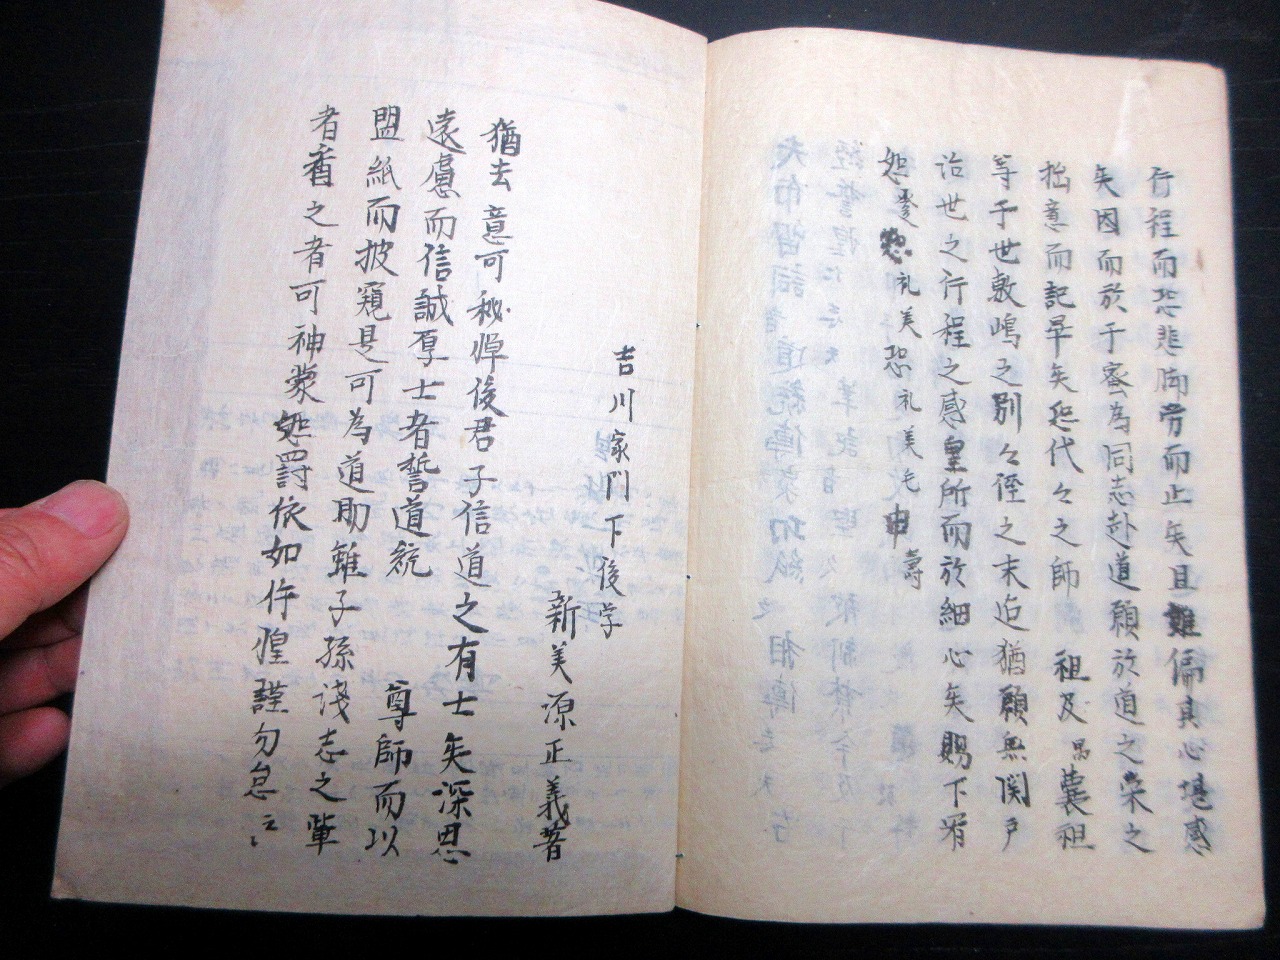 行程而恐悲脚労而止矣且難偏真心堪感
矣因而於于密為同志赴道願放道之栄之
拙意而記畢矣恐代々之師 祖及愚農祖
等于世敷嶋之別々徑之末迄猶願無関戸
治世之行程之感皇所而於細心矣賜下宥
恕 礼美恐礼美毛申 寿
吉川家門下後学
新美源正義著
猶去意可秘惮後君子信道之有士矣深思
遠慮而信誠厚士者誓道統 尊師而以
盟紙而披窺是可為道助雖子孫浅志之輩
者之者可神蒙恕罰依如件惶謹勿怠云々